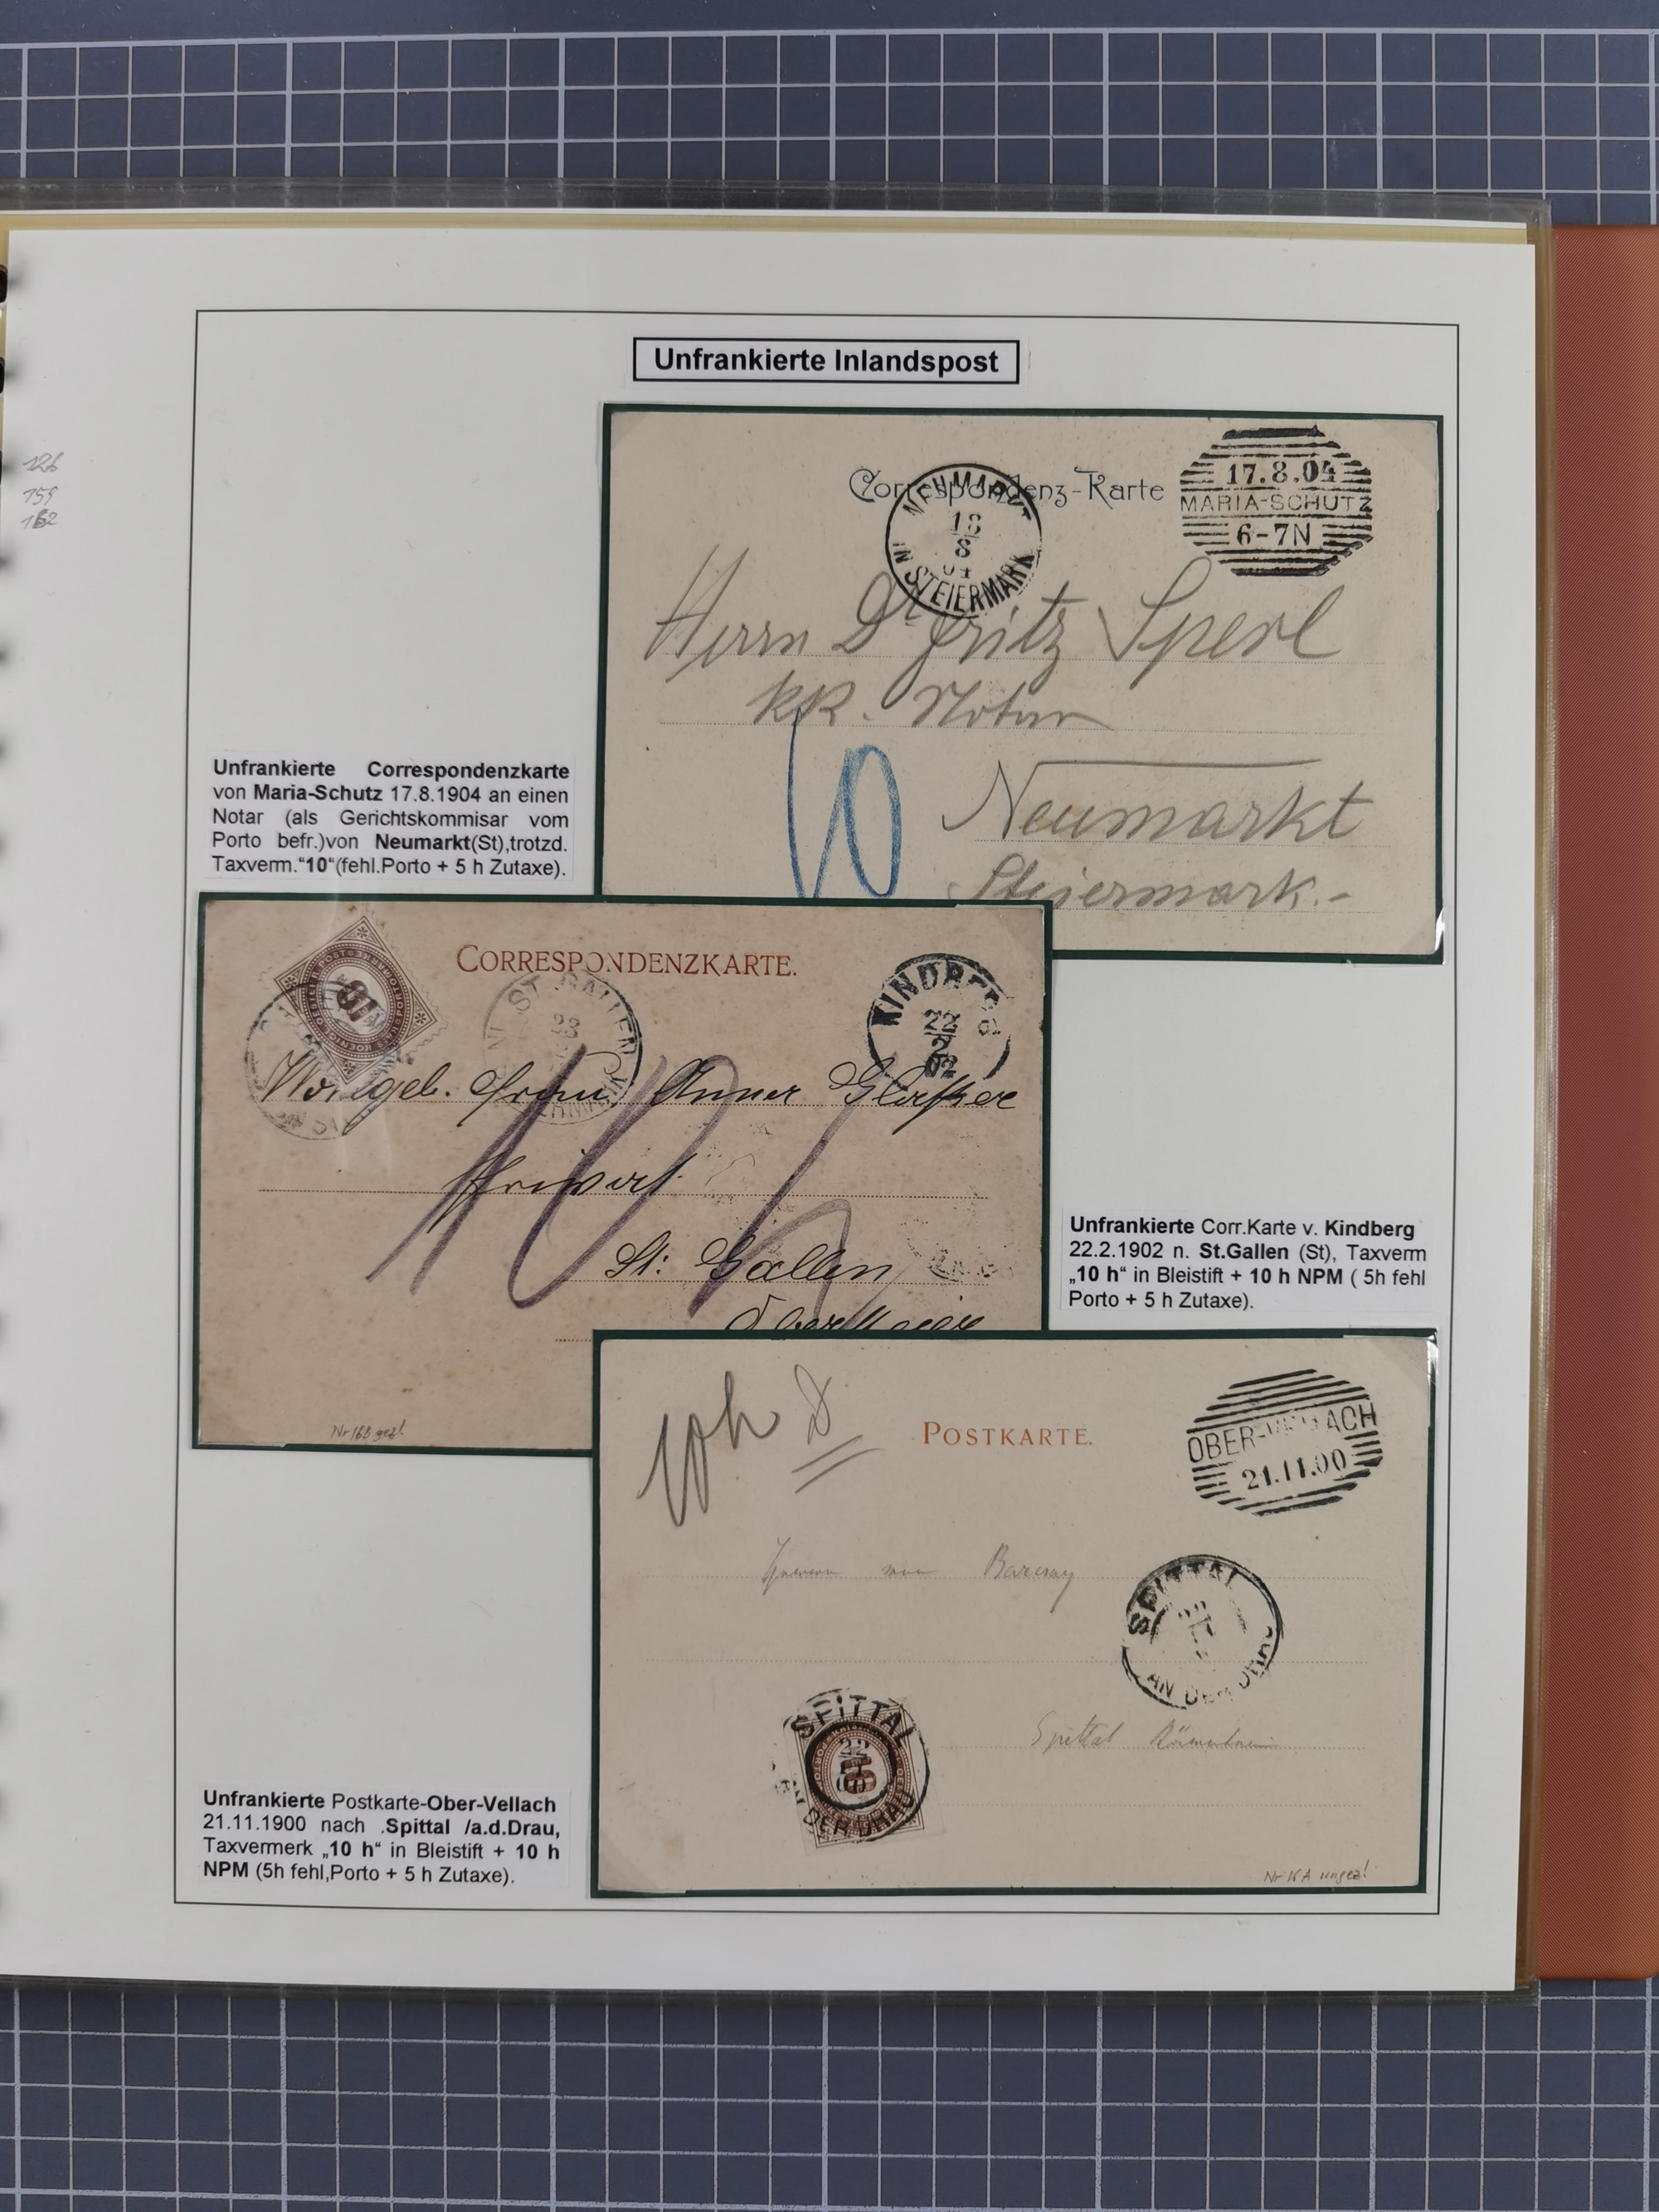 Unfrankierte Inlandspost
126
159
162
Correspondenz-Karte
NEUMARKT
18
8
04
IN STEIERMARK
17.8.04
MARIA-SCHUTZ
6-7N
Herrn Dr Fritz Sperl
kk. Notar
10
Neumarkt
Steiermark.-
Unfrankierte Correspondenzkarte
von Maria-Schutz 17.8.1904 an einen
Notar (als Gerichtskommisar vom
Porto befr.)von Neumarkt(St),trotzd.
Taxverm."10"(fehl.Porto + 5 h Zutaxe).
CORRESPONDENZKARTE.
10
ST. GALLEN
23
KINDBERG
22
2
02
Frau Anna
Privat
10 h
St: Gallen
Nr 16B gez!
Unfrankierte Corr.Karte v. Kindberg
22.2.1902 n. St.Gallen (St), Taxverm
„10 h“ in Bleistift + 10 h NPM ( 5h fehl
Porto + 5 h Zutaxe).
10h
POSTKARTE.
OBER-VELLACH
21.11.00
SPITTAL
AN DER DRAU
Spittal
SPITTAL
22
11
00
AN DER DRAU
Nr 16A ungez!
Unfrankierte Postkarte-Ober-Vellach
21.11.1900 nach .Spittal /a.d.Drau,
Taxvermerk „10 h“ in Bleistift + 10 h
NPM (5h fehl,Porto + 5 h Zutaxe).